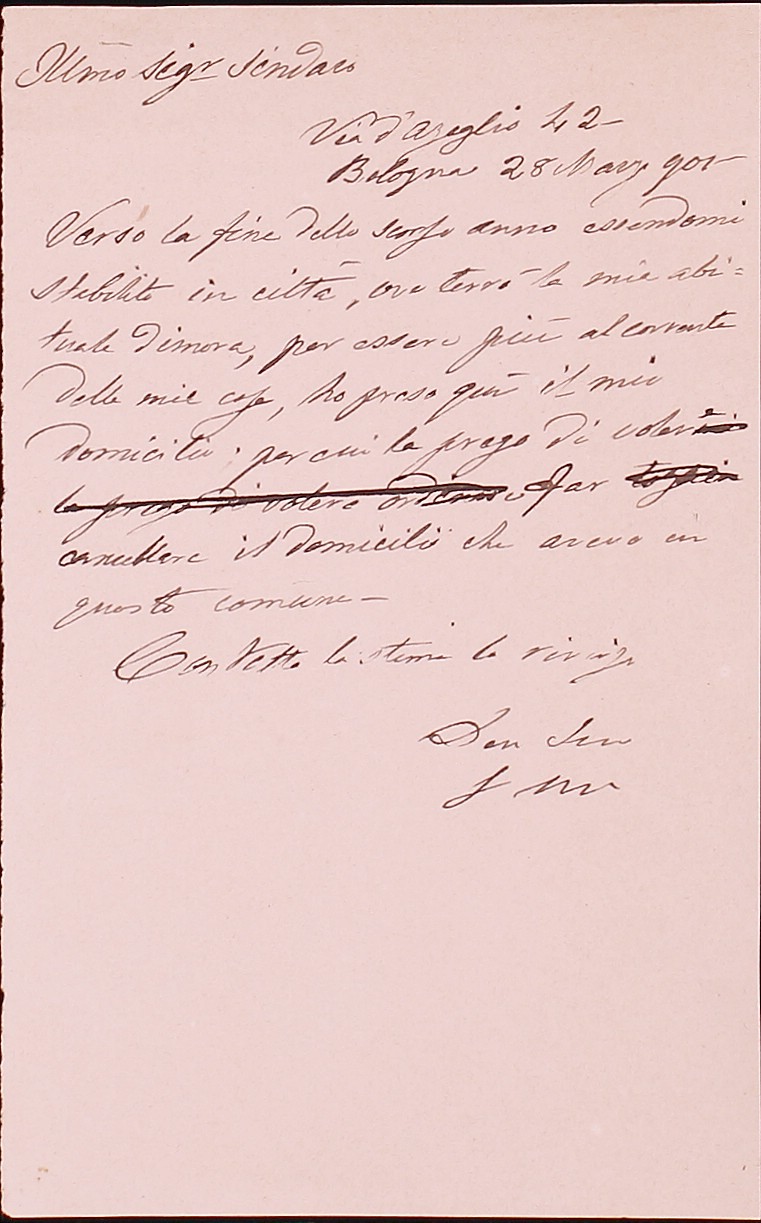 Illmo Sigr Sindaco
Via d'Azeglio 42 –
Bologna 28 Marzo 901 –
Verso la fine dello scorso anno essendomi
stabilito in città, ove terrò la mia abi=
tuale dimora, per essere più al corrente
delle mie cose, ho preso quì il mio
domicilio: per cui la prego di voler
la prego di volere far
cancellare il domicilio che avevo in
questo comune –
Con tutta la stima la